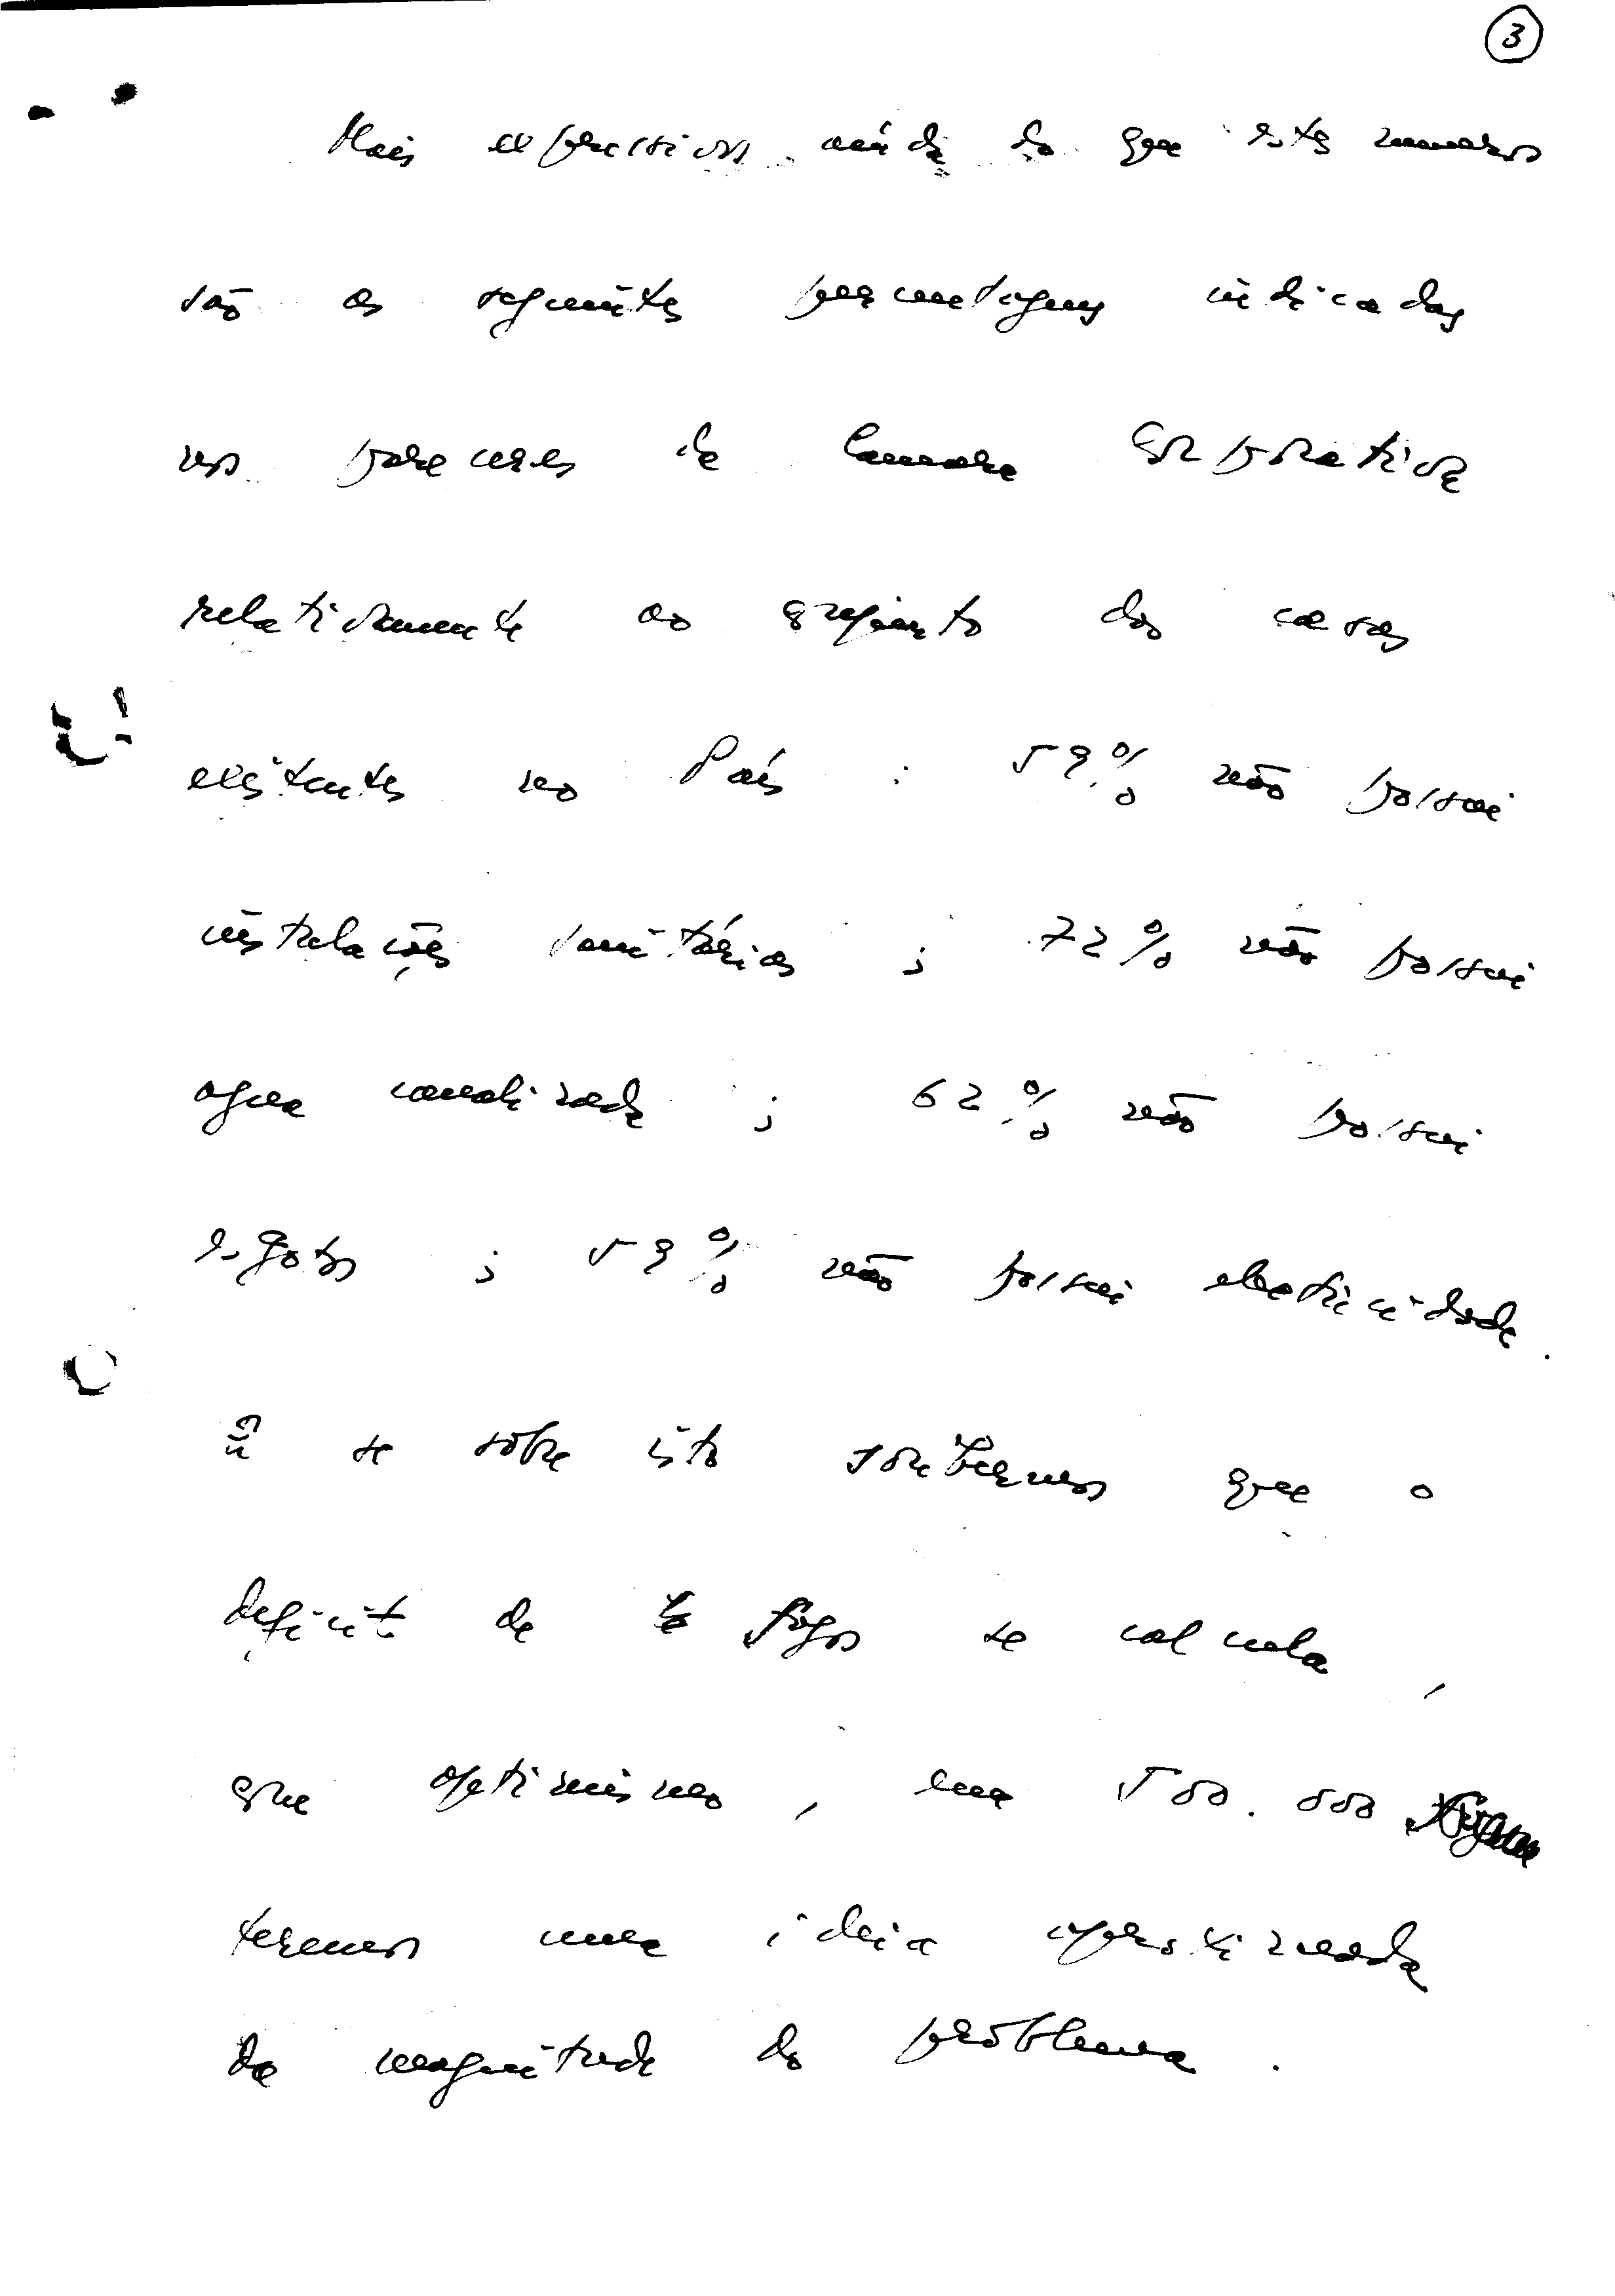 3
Mais expressivos ainda do que estes numeros
são as seguintes percentagens indicadas
nos pareceres da Camara Corporativa
relativamente ao conjunto das casas
existentes no País : 59% não possui
instalações sanitárias ; 72% não possui
agua canalizada ; 62% não possui
esgotos ; 59% não possui electricidade .
E se sobre isto soubermos que o
deficit de fogos se calcula ,
com optimismo , em 500.000
teremos uma ideia aproximada
da magnitude do problema .